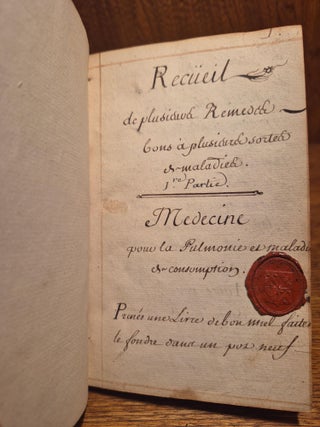 Recüeil
de plusieurs Remedes
bons à plusieurs sortes
de maladies.
1re Partie.
Medecine
pour la Pulmonie et maladie
de consomption.
Prenés une Livre de bon miel faites
le fondre dans un pot neuf